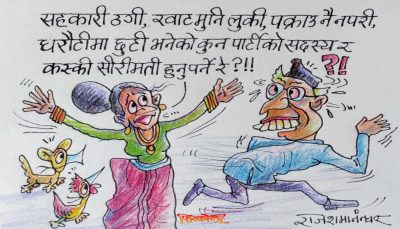 सहकारी ठगी, खाटमुनि लुकी, पक्राउ नै नपरी,
धरौटीमा छुटी भनेको कुन पार्टीको सदस्य र
कस्की सीरीमती हुनुपर्ने रे ?!!
?!
राजेशमानन्धर